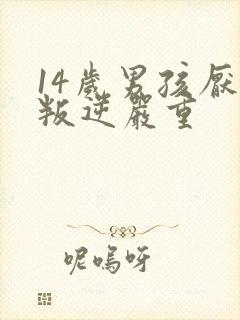 14歲男孩厭
叛逆嚴重
呢嗚呀